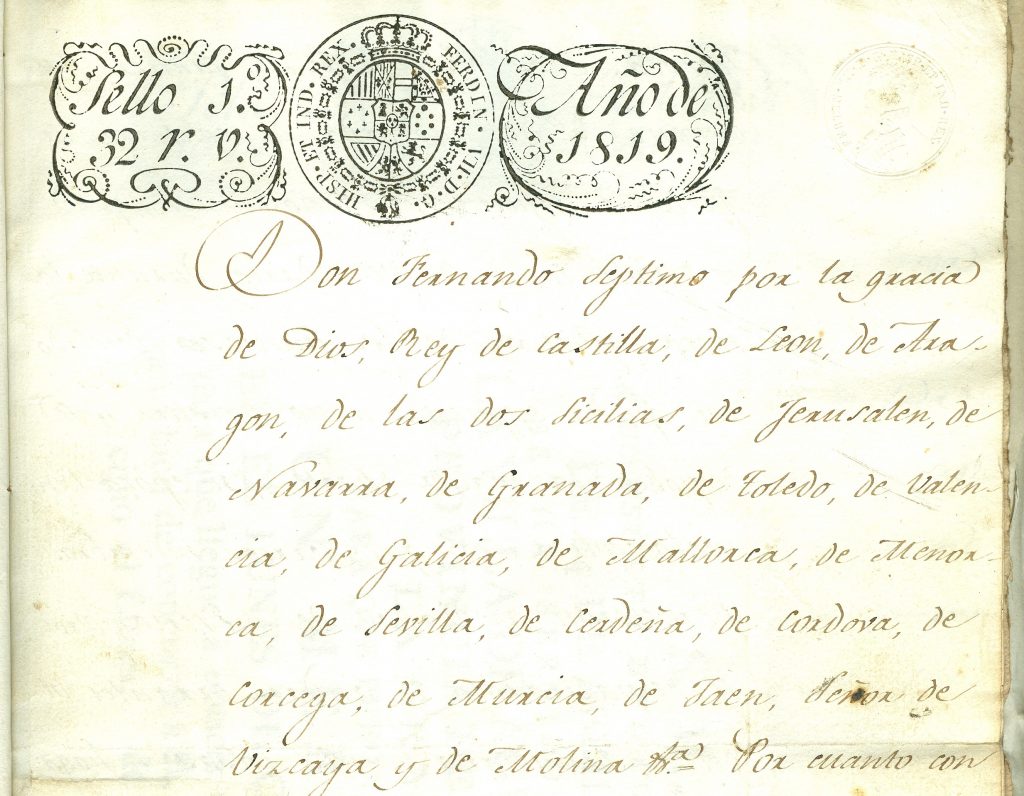 Sello 1.º
32 r. v.
HISP. ET IND. REX. FERDIN. VII. D. G.
Año de
1819.
Don Fernando Septimo por la gracia
de Dios, Rey de Castilla, de Leon, de Ara-
gon, de las dos Sicilias, de Jerusalen, de
Navarra, de Granada, de Toledo, de Valen-
cia, de Galicia, de Mallorca, de Menor-
ca, de Sevilla, de Cerdeña, de Cordova, de
Corcega, de Murcia, de Jaen, Señor de
Vizcaya y de Molina &.ª Por cuanto con